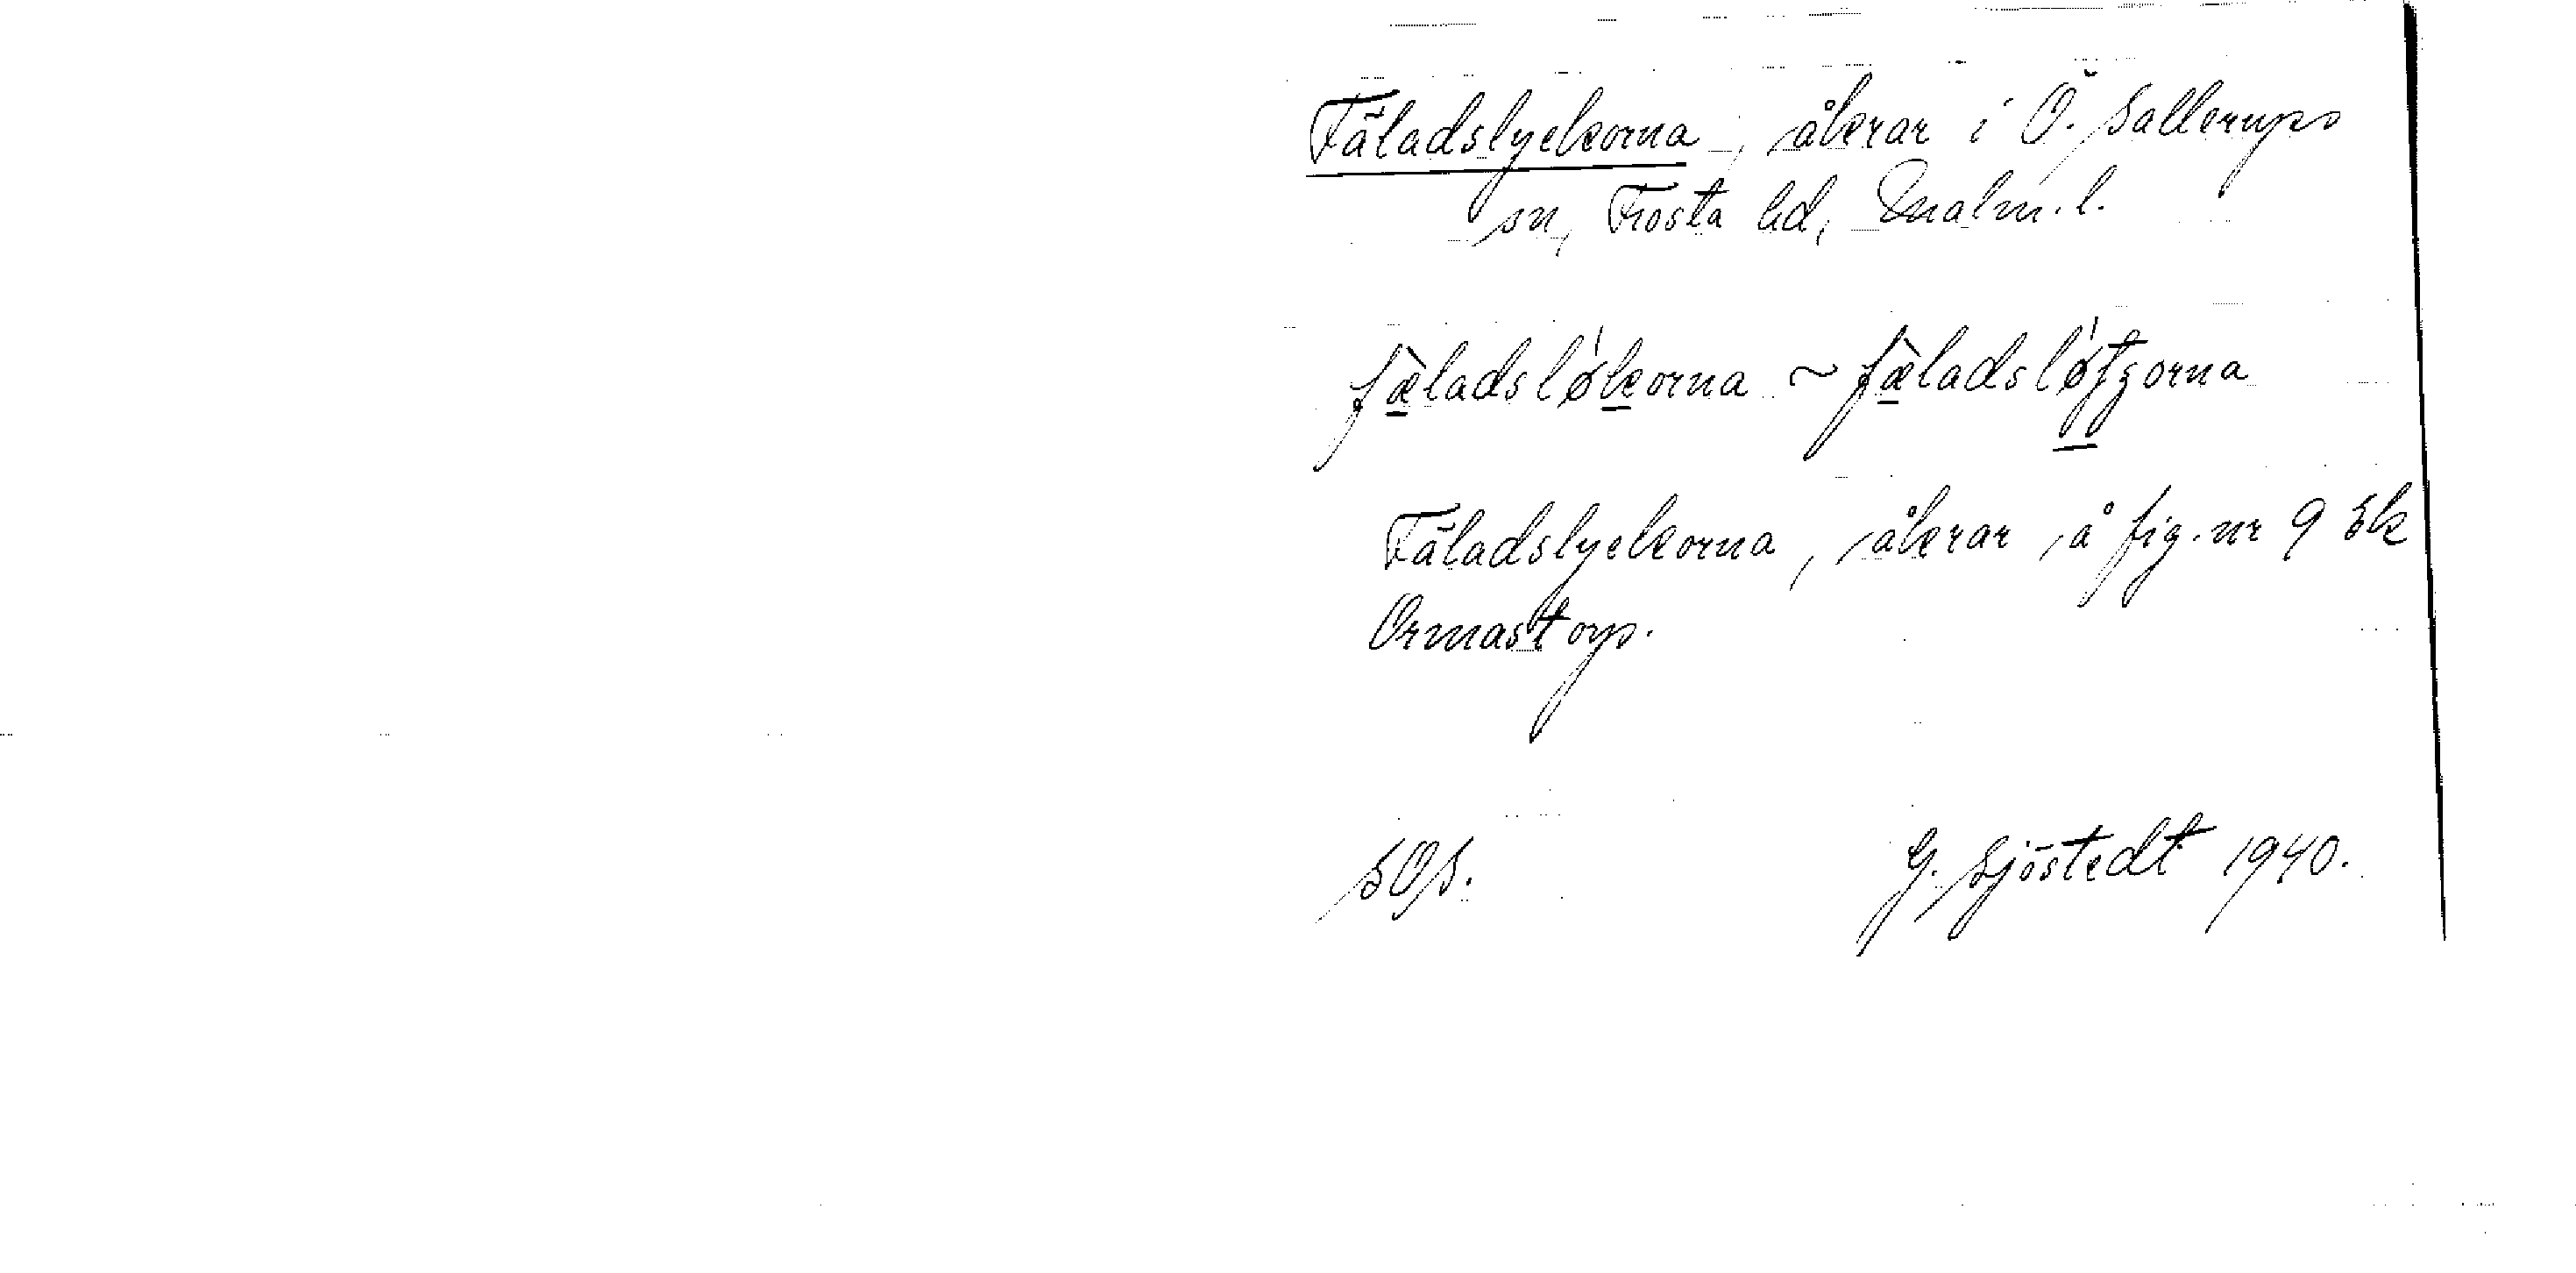 Fäladslyckorna, åkrar i Ö. Sallerups
sn, Frosta hd, Malm. l.
fæ̀ladslø̍korna ~ fæ̀ladslø̍tzorna
Fäladslyckorna, åkrar å fig. nr 9 Sk
Ormastorp.
SOS. G. Sjöstedt 1940.